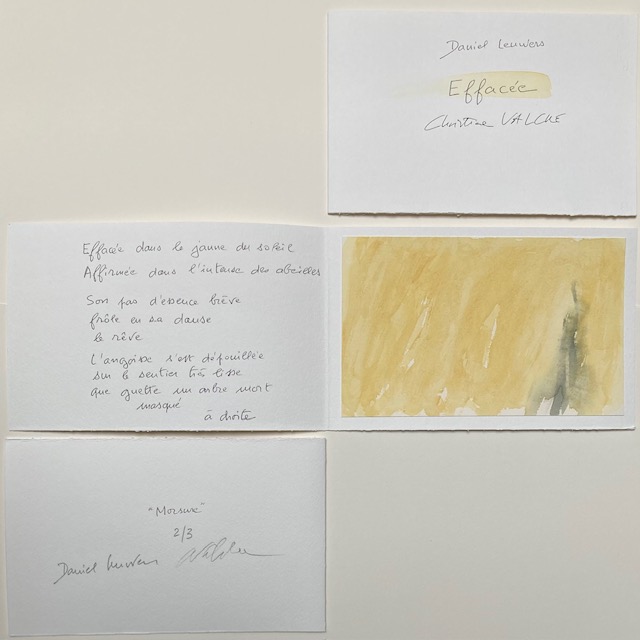 Daniel Leuwers
Effacée
Christine VALCKE
Effacée dans le jaune du soleil
Affirmée dans l'intense des abeilles
Son pas d'essence brève
frôle en sa danse
le rêve
L'angoisse s'est dépouillée
sur le sentier très lisse
que guette un arbre mort
masqué
à droite
"Morsure"
2/3
Daniel Leuwers